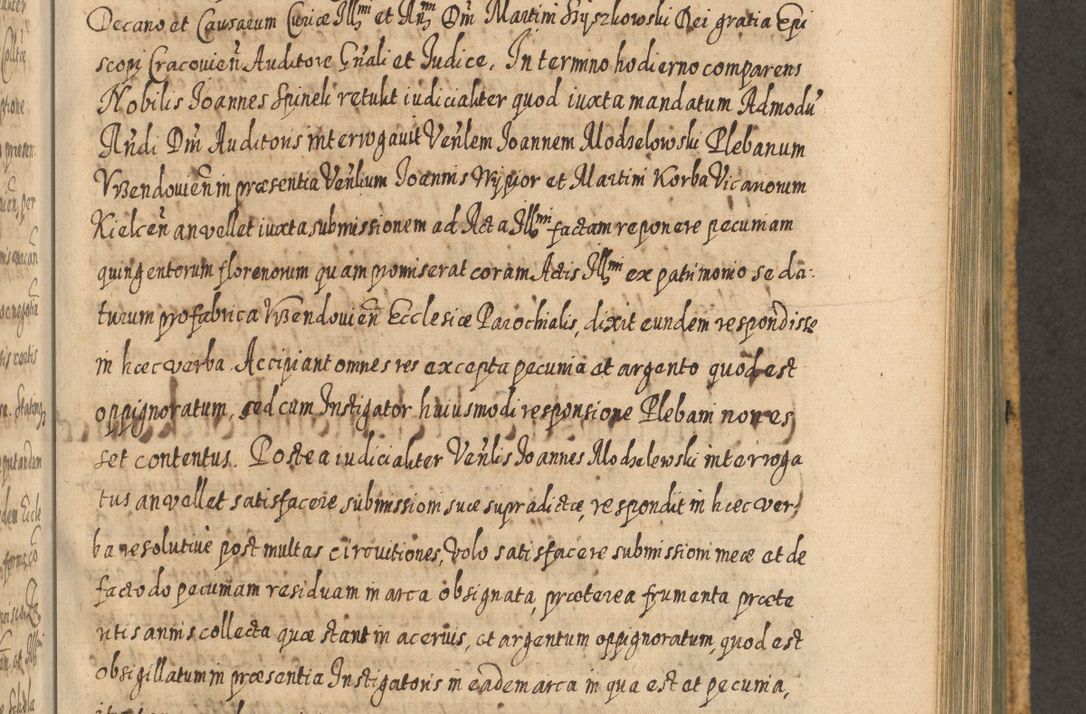 Decano et Causarum Curiæ Illmi et Rndmi Dni Martini Szyszkowski Dei gratia Epi
scopi Cracovieñ Auditore Gñali et Iudice. In termino hodierno comparens
Nobilis Ioannes Spineli retulit iudicialiter quod iuxta mandatum Admodũ
Rñdi Dñi Auditoris interrogavit Veñlem Ioannem Modzelowski Plebanum
Wzendovieñ in præsentia Veñlium Ioannis Wypior et Martini Korba Vicariorum
Kielceñ an vellet iuxta submissionem ad Acta Illmi factam reponere pecuniam
quingentorum florenorum quam promiserat coram Actis Illmi ex patrimonio se da:
turum pro fabrica Wzendovieñ Ecclesiæ Parochialis, dixit eundem respondisse
in hæc verba. Accipiant omnes res excepta pecunia et argento quod est
oppignoratum, sed cum Instigator huiusmodi responsione Plebani non es
set contentus. Postea iudicialiter Veñlis Ioannes Modzelewski interroga
tus an vellet satisfacere submissioni suæ supradictæ, respondit in hæc ver
ba resolutive post multas circuitiones, Volo satisfacere submissioni meæ et de
facto do pecuniam residuam in arca obsignata, præterea frumenta præte
ritis annis collecta quæ stant in acervis, et argentum oppignoratum, quod est
obsigillatum in præsentia Instigatoris in eadem arca in qua est et pecunia,